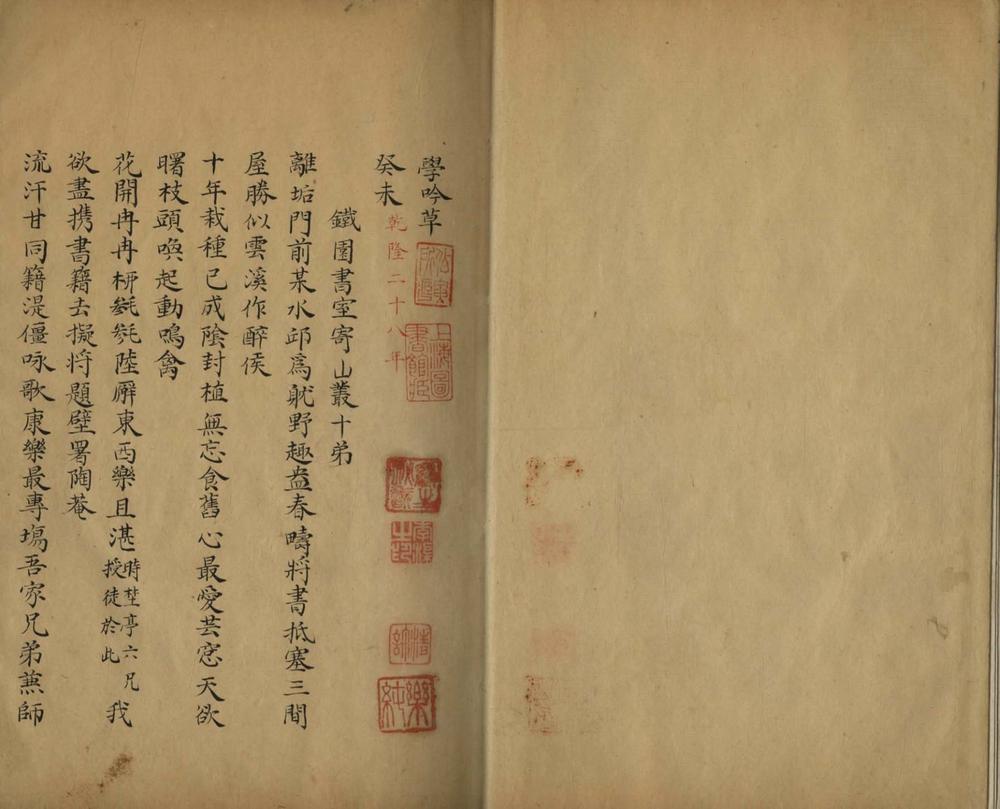 學吟草
癸未
乾隆二十八年
鐵園書室寄山叢十弟
離垢門前某水邱爲躭野趣盎春疇將書抵塞三間
屋勝似雲溪作醉侯
十年栽種已成陰封植無忘食舊心最愛芸窓天欲
曙枝頭喚起動鳴禽
花開冉冉柳毿毿陸廨東西樂且湛時埜亭六兄授徒於此我
欲盡攜書籍去擬將題壁署陶菴
流汗甘同籍湜僵咏歌康樂最專塲吾家兄弟兼師
上海圖書館藏